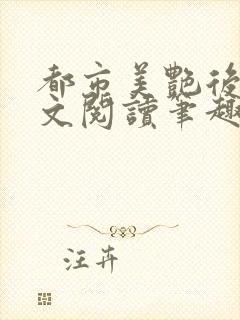 都市美艷後
文閱讀筆趣
汪卉